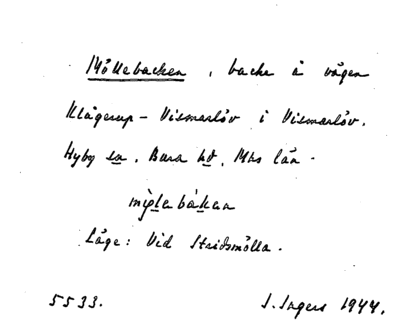 Möllebacken, backe å vägen
Klågerup – Vismarlöv i Vismarlöv.
Hyby sn, Bara hd, Mhs län.
mö̀lebákan
Läge: Vid Stridsmölla.
5533. I. Ingers 1944.